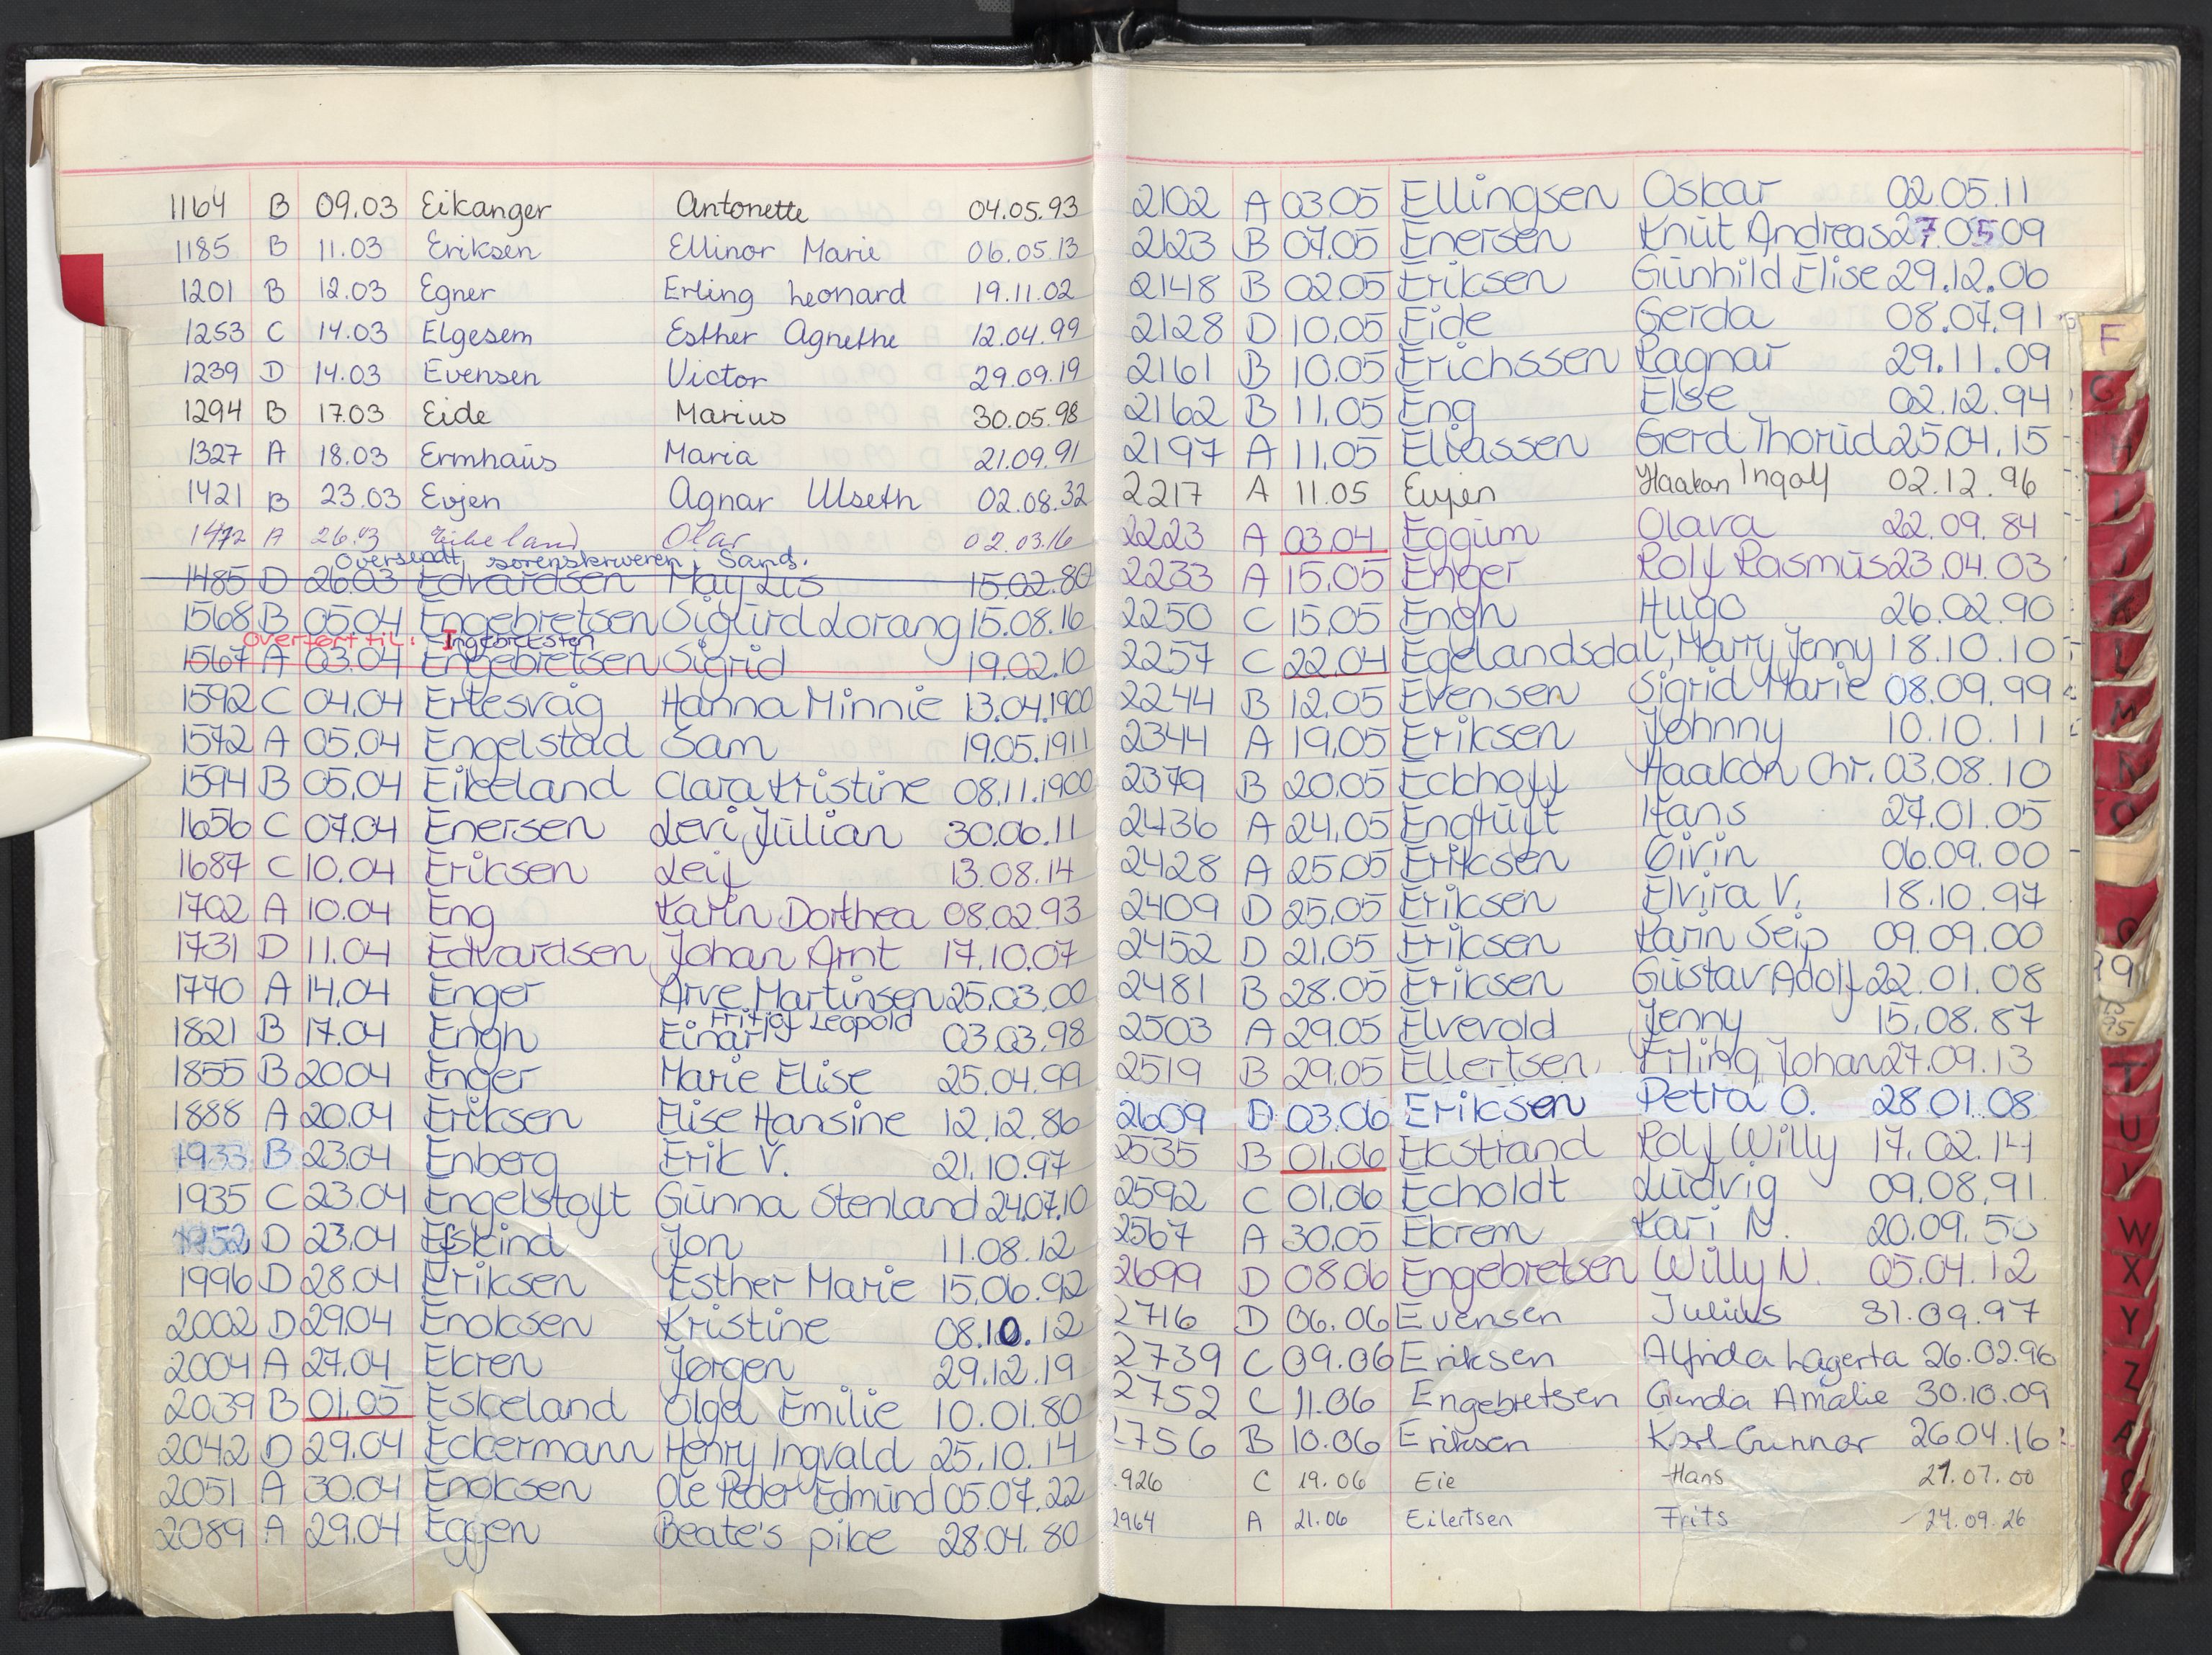 1164 B 09.03 Eikanger Antonette 04.05.93
1185 B 11.03 Eriksen Ellinor Marie 06.05.13
1201 B 12.03 Egner Erling Leonard 19.11.02
1253 C 14.03 Elgesem Esther Agnethe 12.04.99
1239 D 14.03 Evensen Victor 29.09.19
1294 B 17.03 Eide Marius 30.05.98
1327 A 18.03 Ermhaus Maria 21.09.91
1421 B 23.03 Evjen Agnar Ulseth 02.08.32
1472 A 26.03 Eikeland Olav 02.03.16
Oversendt sorenskriveren, Sand.
1485 D 26.03 Edvardsen May Lis 15.02.80
1568 B 05.04 Engebretsen Sigurd Lorang 15.08.16
Overført til: Ingebretsten
1567 A 03.04 Engebretsen Sigrid 19.02.10
1592 C 04.04 Ertesvåg Hanna Minnie 13.04.1900
1572 A 05.04 Engelstad Sam 19.05.1911
1594 B 05.04 Eikeland Clara Kristine 08.11.1900
1656 C 07.04 Enersen Levi Julian 30.06.11
1687 C 10.04 Eriksen Leif 13.08.14
1702 A 10.04 Eng Karin Dorthea 08.02.93
1731 D 11.04 Edvardsen Johan Arnt 17.10.07
1770 A 14.04 Enger Arve Martinsen 25.03.00
1821 B 17.04 Engh Einar Fritjof Leopold 03.03.98
1855 B 20.04 Enger Marie Elise 25.04.99
1888 A 20.04 Eriksen Elise Hansine 12.12.86
1933 B 23.04 Enberg Erik V. 21.10.97
1935 C 23.04 Engelstoft Gunna Stenland 24.07.10
1952 D 23.04 Efskind Jon 11.08.12
1996 D 28.04 Eriksen Esther Marie 15.06.92
2002 D 29.04 Enoksen Kristine 08.10.12
2004 A 27.04 Ekren Jørgen 29.12.19
2039 B 01.05 Eskeland Olga Emilie 10.01.80
2042 D 29.04 Eckermann Henry Ingvald 25.10.14
2051 A 30.04 Enoksen Ole Peder Edmund 05.07.22
2089 A 29.04 Eggen Beate's pike 28.04.80
2102 A 03.05 Ellingsen Oskar 02.05.11
2123 B 07.05 Enersen Knut Andreas 27.05.09
2148 B 02.05 Eriksen Gunhild Elise 29.12.06
2128 D 10.05 Eide Gerda 08.07.91
2161 B 10.05 Erichssen Ragnar 29.11.09
2162 B 11.05 Eng Else 02.12.94
2197 A 11.05 Eliassen Gerd Thorud 25.04.15
2217 A 11.05 Evjen Haakon Ingolf 02.12.96
2223 A 03.04 Eggum Olava 22.09.84
2233 A 15.05 Enger Rolf Rasmus 23.04.03
2250 C 15.05 Engh Hugo 26.02.90
2257 C 22.04 Egelandsdal, Marry Jenny 18.10.10
2244 B 12.05 Evensen Sigrid Marie 08.09.99
2344 A 19.05 Eriksen Johnny 10.10.11
2379 B 20.05 Eckhoff Haakon Chr. 03.08.10
2436 A 24.05 Engtuft Hans 27.01.05
2428 A 25.05 Eriksen Eivin 06.09.00
2409 D 25.05 Eriksen Elvira V. 18.10.97
2452 D 21.05 Eriksen Karin Seip 09.09.00
2481 B 28.05 Eriksen Gustav Adolf 22.01.08
2503 A 29.05 Elvevold Jenny 15.08.87
2519 B 29.05 Ellertsen Erling Johan 27.09.13
2609 D 03.06 Eriksen Petra O. 28.01.08
2535 B 01.06 Ekstrand Rolf Willy 17.02.14
2592 C 01.06 Echoldt Ludvig 09.08.91
2567 A 30.05 Ekrem Kari N. 20.09.50
2699 D 08.06 Engebretsen Willy N. 05.04.12
2716 D 06.06 Evensen Julius 31.09.97
2739 C 09.06 Eriksen Alfrida Lagerta 26.02.96
2752 C 11.06 Engebretsen Gunda Amalie 30.10.09
756 B 10.06 Eriksen Karl-Gunnar 26.04.16
926 C 19.06 Eie Hans 27.07.00
2964 A 21.06 Eilertsen Frits 24.09.26
F
G
H
I
J
K
L
M
N
O
T
U
V
W
X
Y
Z